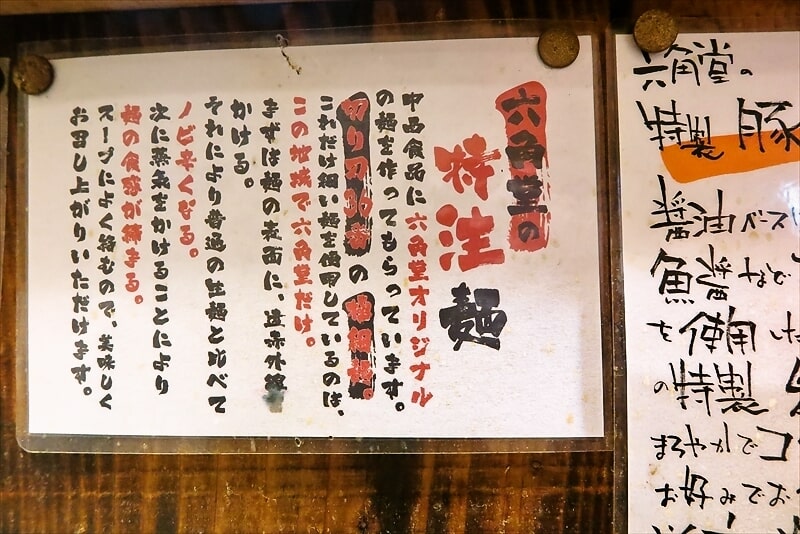 六角堂の
特注麺
中西食品に六角堂オリジナル
の麺を作ってもらっています。
切り刃30番の極細麺。
これだけ細い麺を使用しているのは、
この地域で六角堂だけ。
まずは麺の表面に、遠赤外線
かける。
それにより普通の生麺と比べて
ノビ辛くなる。
次に蒸気をかけることにより
麺の食感が締まる。
スープによく絡むので、美味しく
お召し上がりいただけます。
六角堂の
特製 豚
醤油ベース
魚醤
を使用
の特製
まろやかでコ
お好みでお